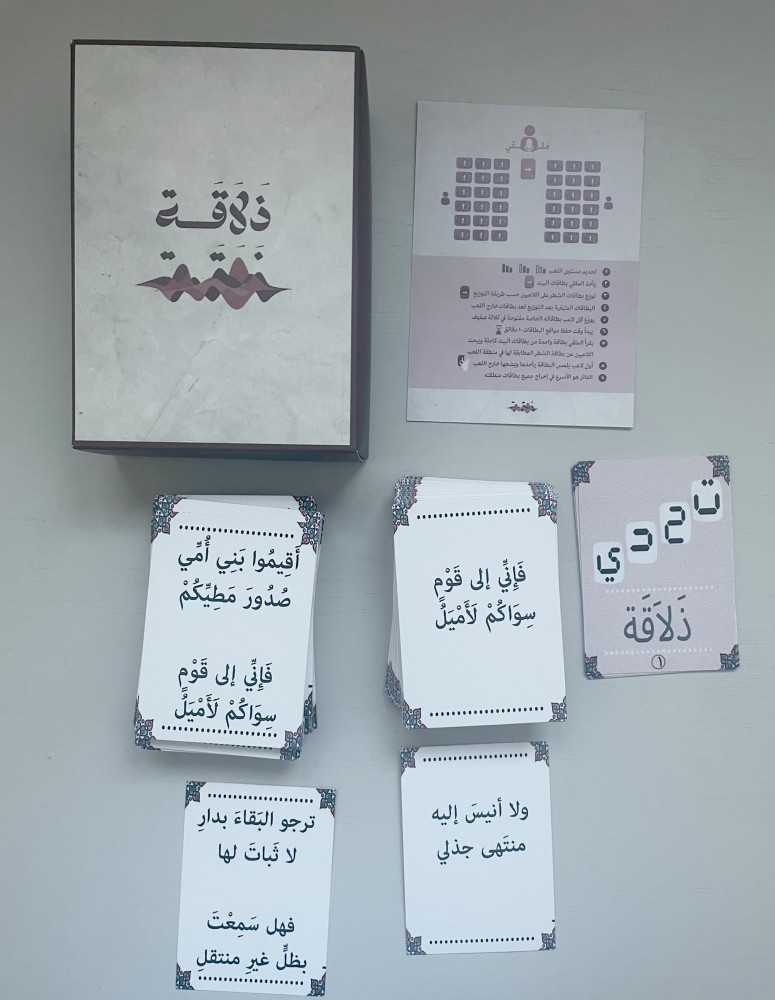 ذَلَاقَة
ذلاقة
تحدید مستوى اللعب
يأخذ الملقي بطاقات البيت
توزع بطاقات الشطر على اللاعبين حسب طريقة التوزيع
البطاقات المتبقية بعد التوزيع تعد بطاقات خارج اللعب
يوزع كل لاعب بطاقاته الخاصة مفتوحة في ثلاثة صفوف
يبدأ وقت حفظ مواقع البطاقات ١٠ دقائق
يقرأ الملقي بطاقة واحدة من بطاقات البيت كاملة ويبحث
اللاعبين عن بطاقة الشطر المطابقة لها في منطقة اللعب
أول لاعب يلمس البطاقة يأخذها ويضعها خارج اللعب
الفائز هو الأسرع في إخراج جميع بطاقات منطقته
أَقِيمُوا بَنِي أُمِّي
صُدُورَ مَطِيِّكُمْ
فَإِنِّي إلى قَوْمٍ
سِوَاكُمْ لَأَمْيَلُ
فَإِنِّي إلى قَوْمٍ
سِوَاكُمْ لَأَمْيَلُ
تحدي
ذَلَاقَة
١
ترجو البَقاءَ بدارِ
لا ثَباتَ لها
فهل سَمِعْتَ
بظلٍّ غيرِ منتقلِ
ولا أنيسَ إليه
منتَهى جذلي